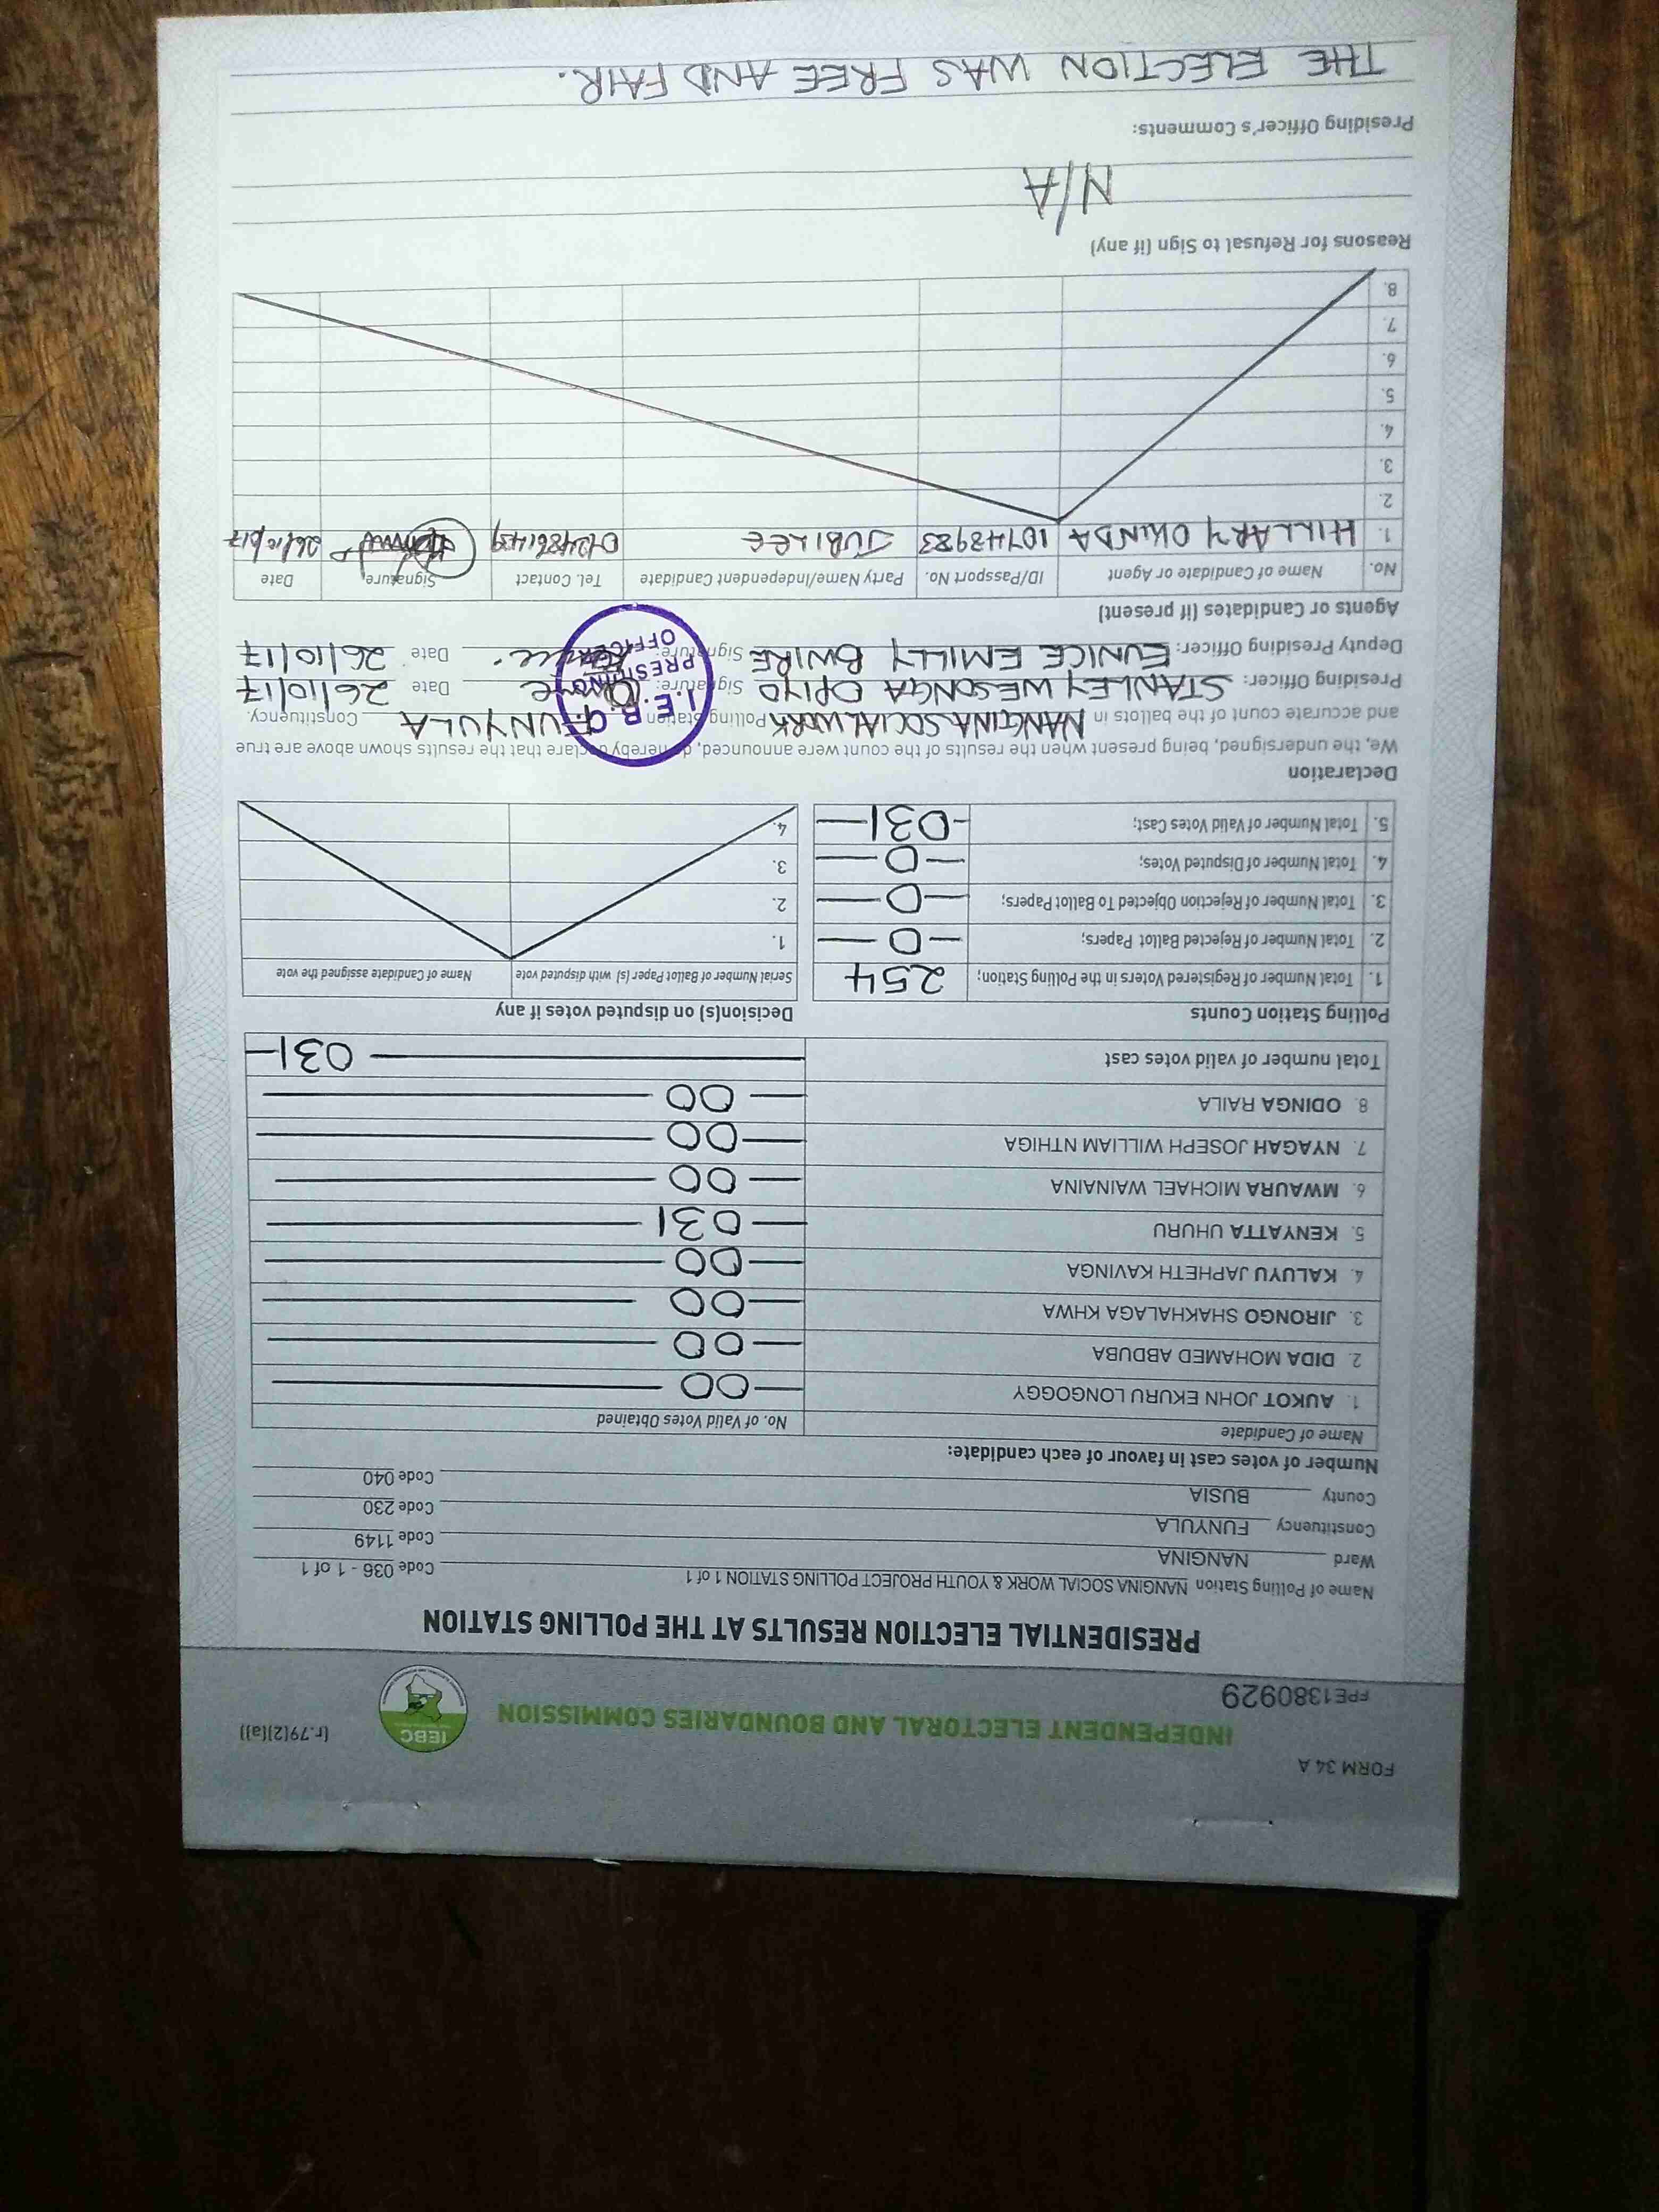 FORM 34 A
(r.79(2)(a))
INDEPENDENT ELECTORAL AND BOUNDARIES COMMISSION
IEBC
FPE1380929
PRESIDENTIAL ELECTION RESULTS AT THE POLLING STATION
Name of Polling Station NANGINA SOCIAL WORK & YOUTH PROJECT POLLING STATION 1 of 1 Code 036 - 1 of 1
Ward NANGINA Code 1149
Constituency FUNYULA Code 230
County BUSIA Code 040
Number of votes cast in favour of each candidate:
Name of Candidate No. of Valid Votes Obtained
1. AUKOT JOHN EKURU LONGOGGY 00
2. DIDA MOHAMED ABDUBA 00
3. JIRONGO SHAKHALAGA KHWA 00
4. KALUYU JAPHETH KAVINGA 00
5. KENYATTA UHURU 031
6. MWAURA MICHAEL WAINAINA 00
7. NYAGAH JOSEPH WILLIAM NTHIGA 00
8. ODINGA RAILA 00
Total number of valid votes cast 031
Polling Station Counts
1. Total Number of Registered Voters in the Polling Station; 254
2. Total Number of Rejected Ballot Papers; 0
3. Total Number of Rejection Objected To Ballot Papers; 0
4. Total Number of Disputed Votes; 0
5. Total Number of Valid Votes Cast; 031
Decision(s) on disputed votes if any
Serial Number of Ballot Paper (s) with disputed vote Name of Candidate assigned the vote
1.
2.
3.
4.
Declaration
We, the undersigned, being present when the results of the count were announced, do hereby declare that the results shown above are true
and accurate count of the ballots in NANGINA SOCIAL WORK Polling Station FUNYULA Constituency.
Presiding Officer: STANLEY WESONGA OPIYO Signature: Date 26/10/17
Deputy Presiding Officer: EUNICE EMILLY BWIRE Signature: Date 26/10/17
I.E.B.C.
PRESIDING
OFFICER
Agents or Candidates (if present)
No. Name of Candidate or Agent ID/Passport No. Party Name/Independent Candidate Tel. Contact Signature Date
1. HILLARY OKINDA 10748983 JUBILEE 26/10/17
2.
3.
4.
5.
6.
7.
8.
Reasons for Refusal to Sign (if any)
N/A
Presiding Officer's Comments:
THE ELECTION WAS FREE AND FAIR.